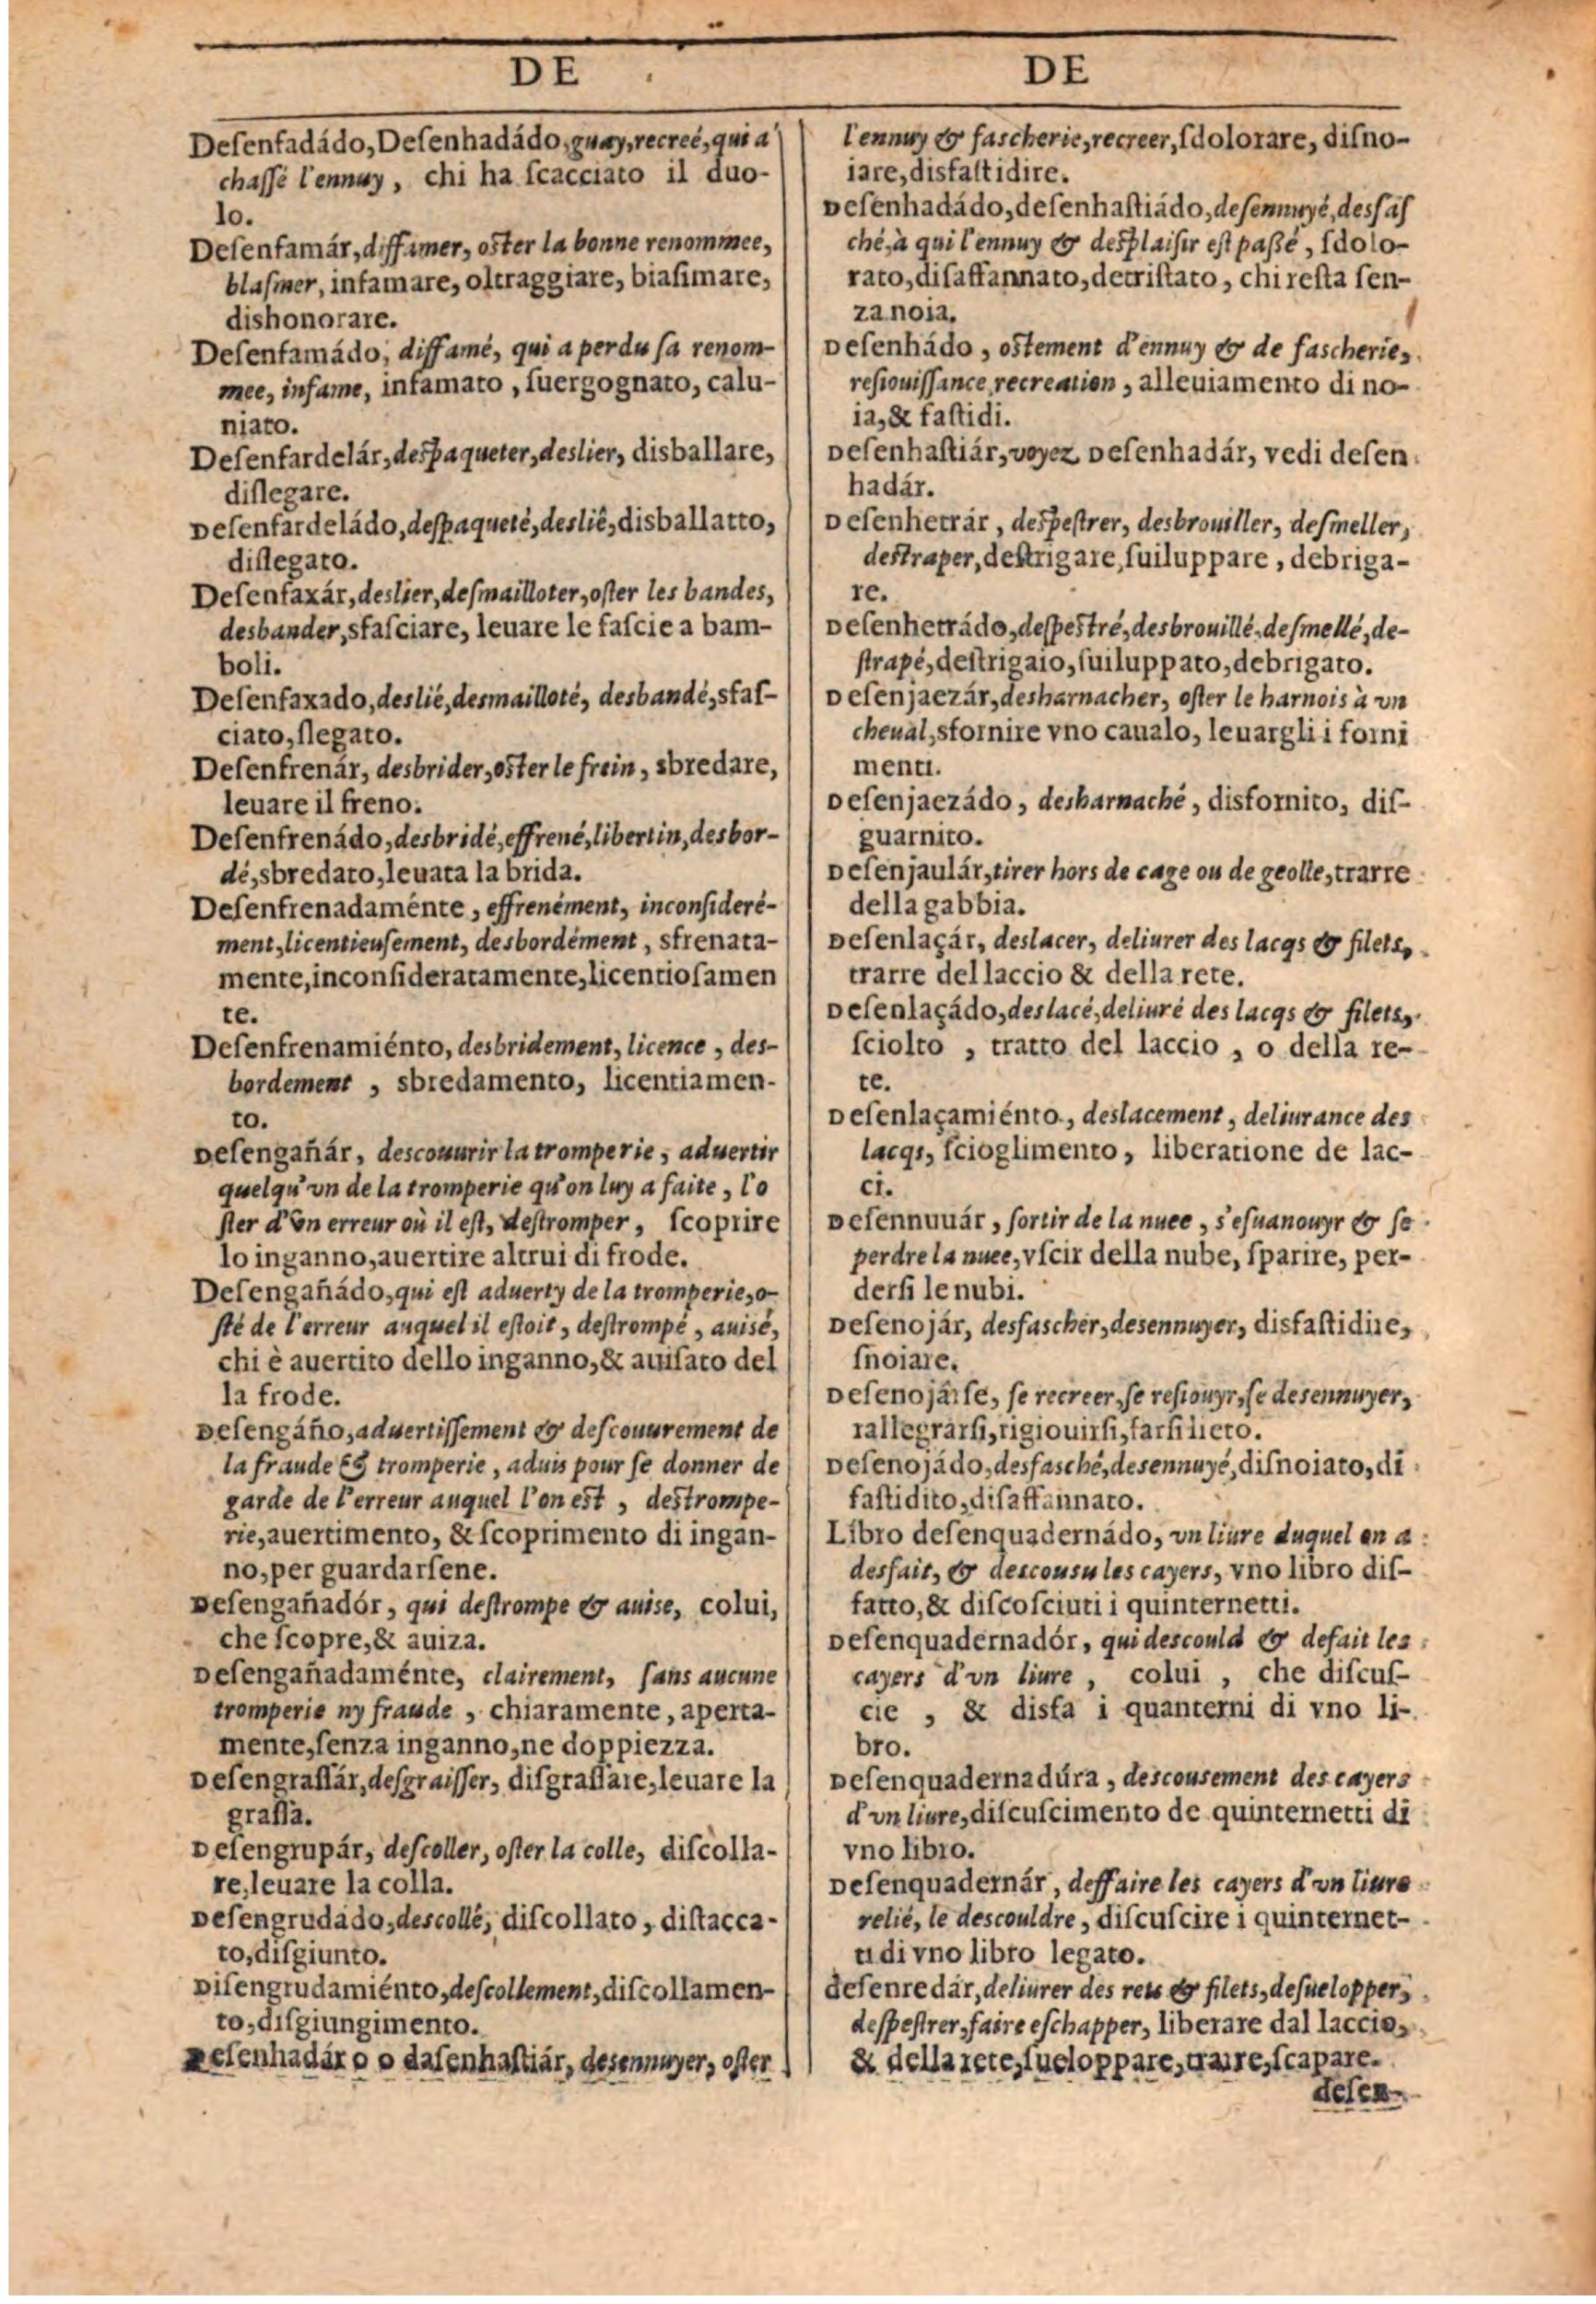 DE
DE
Deſenfadádo, Deſenhadádo, guay, recreé, qui a
chaſſé l'ennuy, chi ha ſcacciato il duo-
lo.
Deſenfamár, diffamer, oſter la bonne renommee,
blaſmer, infamare, oltraggiare, biaſimare,
dishonorare.
Deſenfamádo, diffamé, qui a perdu ſa renom-
mee, infame, infamato, ſuergognato, calu-
niato.
Deſenfardelár, deſpaqueter, deslier, disballare,
diſlegare.
Deſenfardeládo, deſpaqueté, deslié, disballatto,
diſlegato.
Deſenfaxár, deslier, deſmailloter, oſter les bandes,
desbander, sfaſciare, leuare le faſcie a bam-
boli.
Deſenfaxado, deslié, desmailloté, desbandé, sfaſ-
ciato, ſlegato.
Deſenfrenár, desbrider, oſter le frein, sbredare,
leuare il freno.
Deſenfrenádo, desbridé, effrené, libertin, desbor-
dé, sbredato, leuata la brida.
Deſenfrenadaménte, effrenément, inconſideré-
ment, licentieuſement, desbordément, sfrenata-
mente, inconſideratamente, licentioſamen
te.
Deſenfrenamiénto, desbridement, licence, des-
bordement, sbredamento, licentiamen-
to.
Deſengañár, deſcouurir la tromperie, aduertir
quelqu'vn de la tromperie qu'on luy a faite, l'o
ſter d'vn erreur où il eſt, deſtromper, ſcoprire
lo inganno, auertire altrui di frode.
Deſengañádo, qui eſt aduerty de la tromperie, o-
ſté de l'erreur auquel il eſtoit, deſtrompé, auisé,
chi è auertito dello inganno, & auiſato del
la frode.
Deſengáño, aduertiſſement & deſcouurement de
la fraude & tromperie, aduis pour ſe donner de
garde de l'erreur auquel l'on eſt, deſtrompe-
rie, auertimento, & ſcoprimento di ingan-
no, per guardarſene.
Deſengañadór, qui deſtrompe & auise, colui,
che ſcopre, & auiza.
Deſengañadaménte, clairement, ſans aucune
tromperie ny fraude, chiaramente, aperta-
mente, ſenza inganno, ne doppiezza.
Deſengraſſár, deſgraiſſer, diſgraſſare, leuare la
graſſa.
Deſengrupár, deſcoller, oſter la colle, diſcolla-
re, leuare la colla.
Deſengrudádo, deſcollé, diſcollato, diſtacca-
to, diſgiunto.
Diſengrudamiénto, deſcollement, diſcollamen-
to, diſgiungimento.
Deſenhadár o o daſenhaſtiár, desennuyer, oſter
l'ennuy & fascherie, recreer, ſdolorare, diſno-
iare, disfaſtidire.
Deſenhadádo, deſenhaſtiádo, deſennuyé, desſaſ
ché, à qui l'ennuy & deſplaiſir eſt paßé, ſdolo-
rato, diſaffannato, detriſtato, chi reſta ſen-
za noia.
Deſenhádo, oſtement d'ennuy & de fascherie,
reſiouiſſance, recreation, alleuiamento di no-
ia, & faſtidi.
Deſenhaſtiár, voyez Deſenhadár, vedi deſen
hadár.
Deſenhetrár, deſpeſtrer, desbrouiller, deſmeller,
deſtraper, deſtrigare, ſuiluppare, debriga-
re.
Deſenhetrádo, deſpeſtré, desbrouillé, deſmellé, de-
ſtrapé, deſtrigaio, ſuiluppato, debrigato.
Deſenjaezár, desharnacher, oſter le harnois à vn
cheual, sfornire vno caualo, leuargli i forni
menti.
Deſenjaezádo, desharnaché, disfornito, diſ-
guarnito.
Deſenjaulár, tirer hors de cage ou de geolle, trarre
della gabbia.
Deſenlaçár, deslacer, deliurer des lacqs & filets,
trarre del laccio & della rete.
Deſenlaçádo, deslacé, deliuré des lacqs & filets,
ſciolto, tratto del laccio, o della re-
te.
Deſenlaçamiénto, deslacement, deliurance des
lacqs, ſcioglimento, liberatione de lac-
ci.
Deſennuuár, ſortir de la nuee, s'eſuanouyr & ſe
perdre la nuee, vſcir della nube, ſparire, per-
derſi le nubi.
Deſenojár, desfascher, desennuyer, disfaſtidire,
ſnoiare.
Deſenojárſe, ſe recreer, ſe reſiouyr, ſe desennuyer,
rallegrarſi, rigiouirſi, farſi lieto.
Deſenojádo, desfasché, desennuyé, diſnoiato, di
faſtidito, diſaffannato.
Líbro deſenquadernádo, vn liure duquel on a
desfait, & descousu les cayers, vno libro diſ-
fatto, & diſcoſciuti i quinternetti.
Deſenquadernadór, qui descould & defait les
cayers d'vn liure, colui, che diſcuſ-
cie, & disfa i quanterni di vno li-
bro.
Deſenquadernadúra, descousement des cayers
d'vn liure, diſcuſcimento de quinternetti di
vno libro.
Deſenquadernár, deffaire les cayers d'vn liure
relié, le descouldre, diſcuſcire i quinternet-
ti di vno libro legato.
deſenredár, deliurer des rets & filets, deſuelopper,
deſpeſtrer, faire eſchapper, liberare dal laccio,
& della rete, ſueloppare, traire, ſcapare.
deſen-